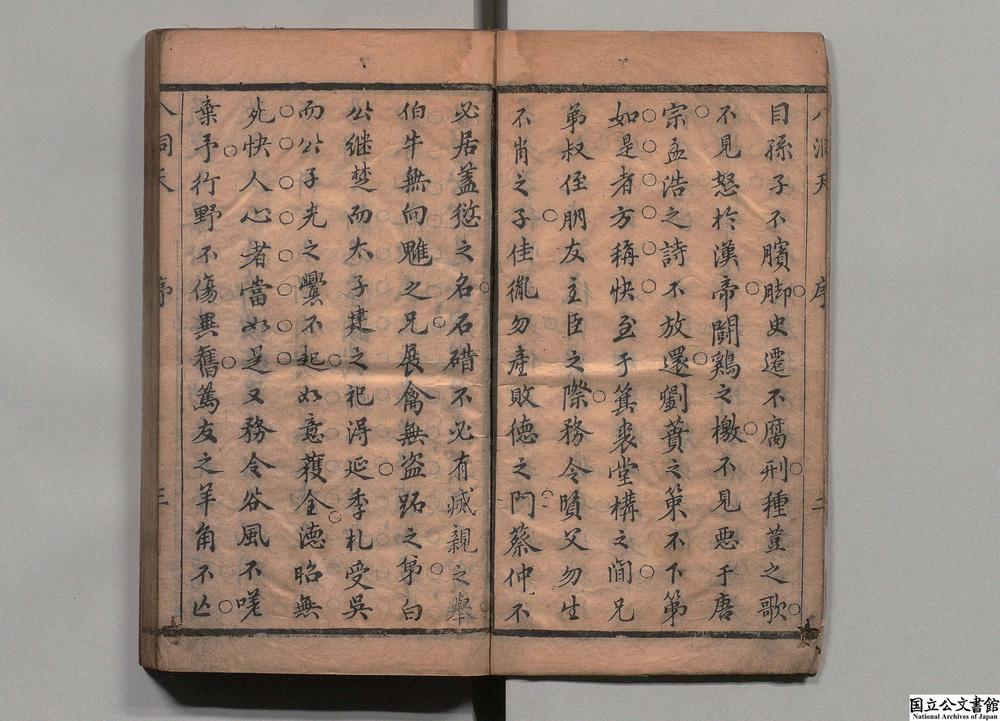 目孫子不臏脚史遷不腐刑種荳之歌
不見怒於漢帝鬪鷄之檄不見惡于唐
宗孟浩之詩不放還劉蕡之策不下第
如是者方稱快至于箕裘堂構之間兄
弟叔侄朋友主臣之際務令賢父勿生
不肖之子佳胤勿產敗德之門蔡仲不
必居蓋愆之名石碏不必有滅親之舉
伯牛無向魋之兄展禽無盜跖之弟白
公継楚而太子建之祀得延季札受吳
而公子光之釁不起如意獲全德昭無
死快人心者當如是又務令谷風不嗟
棄予行野不傷異舊篤友之羊角不亾
八洞天
序
二
八洞天
序
三
国立公文書館
National Archives of Japan